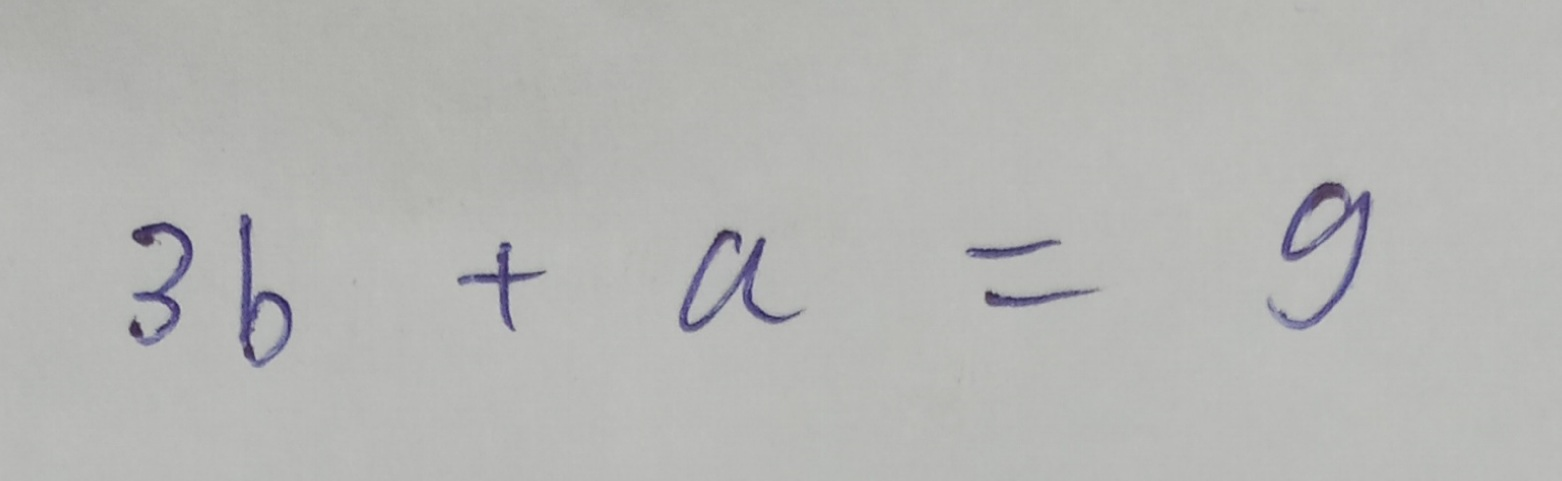 3b + a = 9